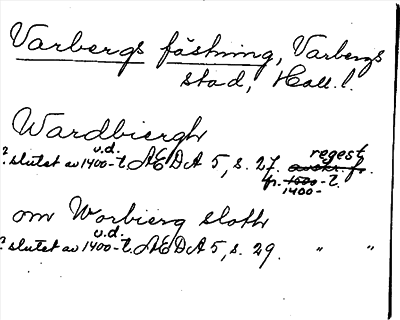 Varbergs fästning, Varbergs
stad, Hall. l.
Wardbiergh
u.d. regest
? slutet av 1400-t. ÆDA 5, s. 27. avskr. f.
fr. 1500-t.
1400-
om Worbierg sloth
u.d.
? slutet av 1400-t. ÆDA 5, s. 29. " "